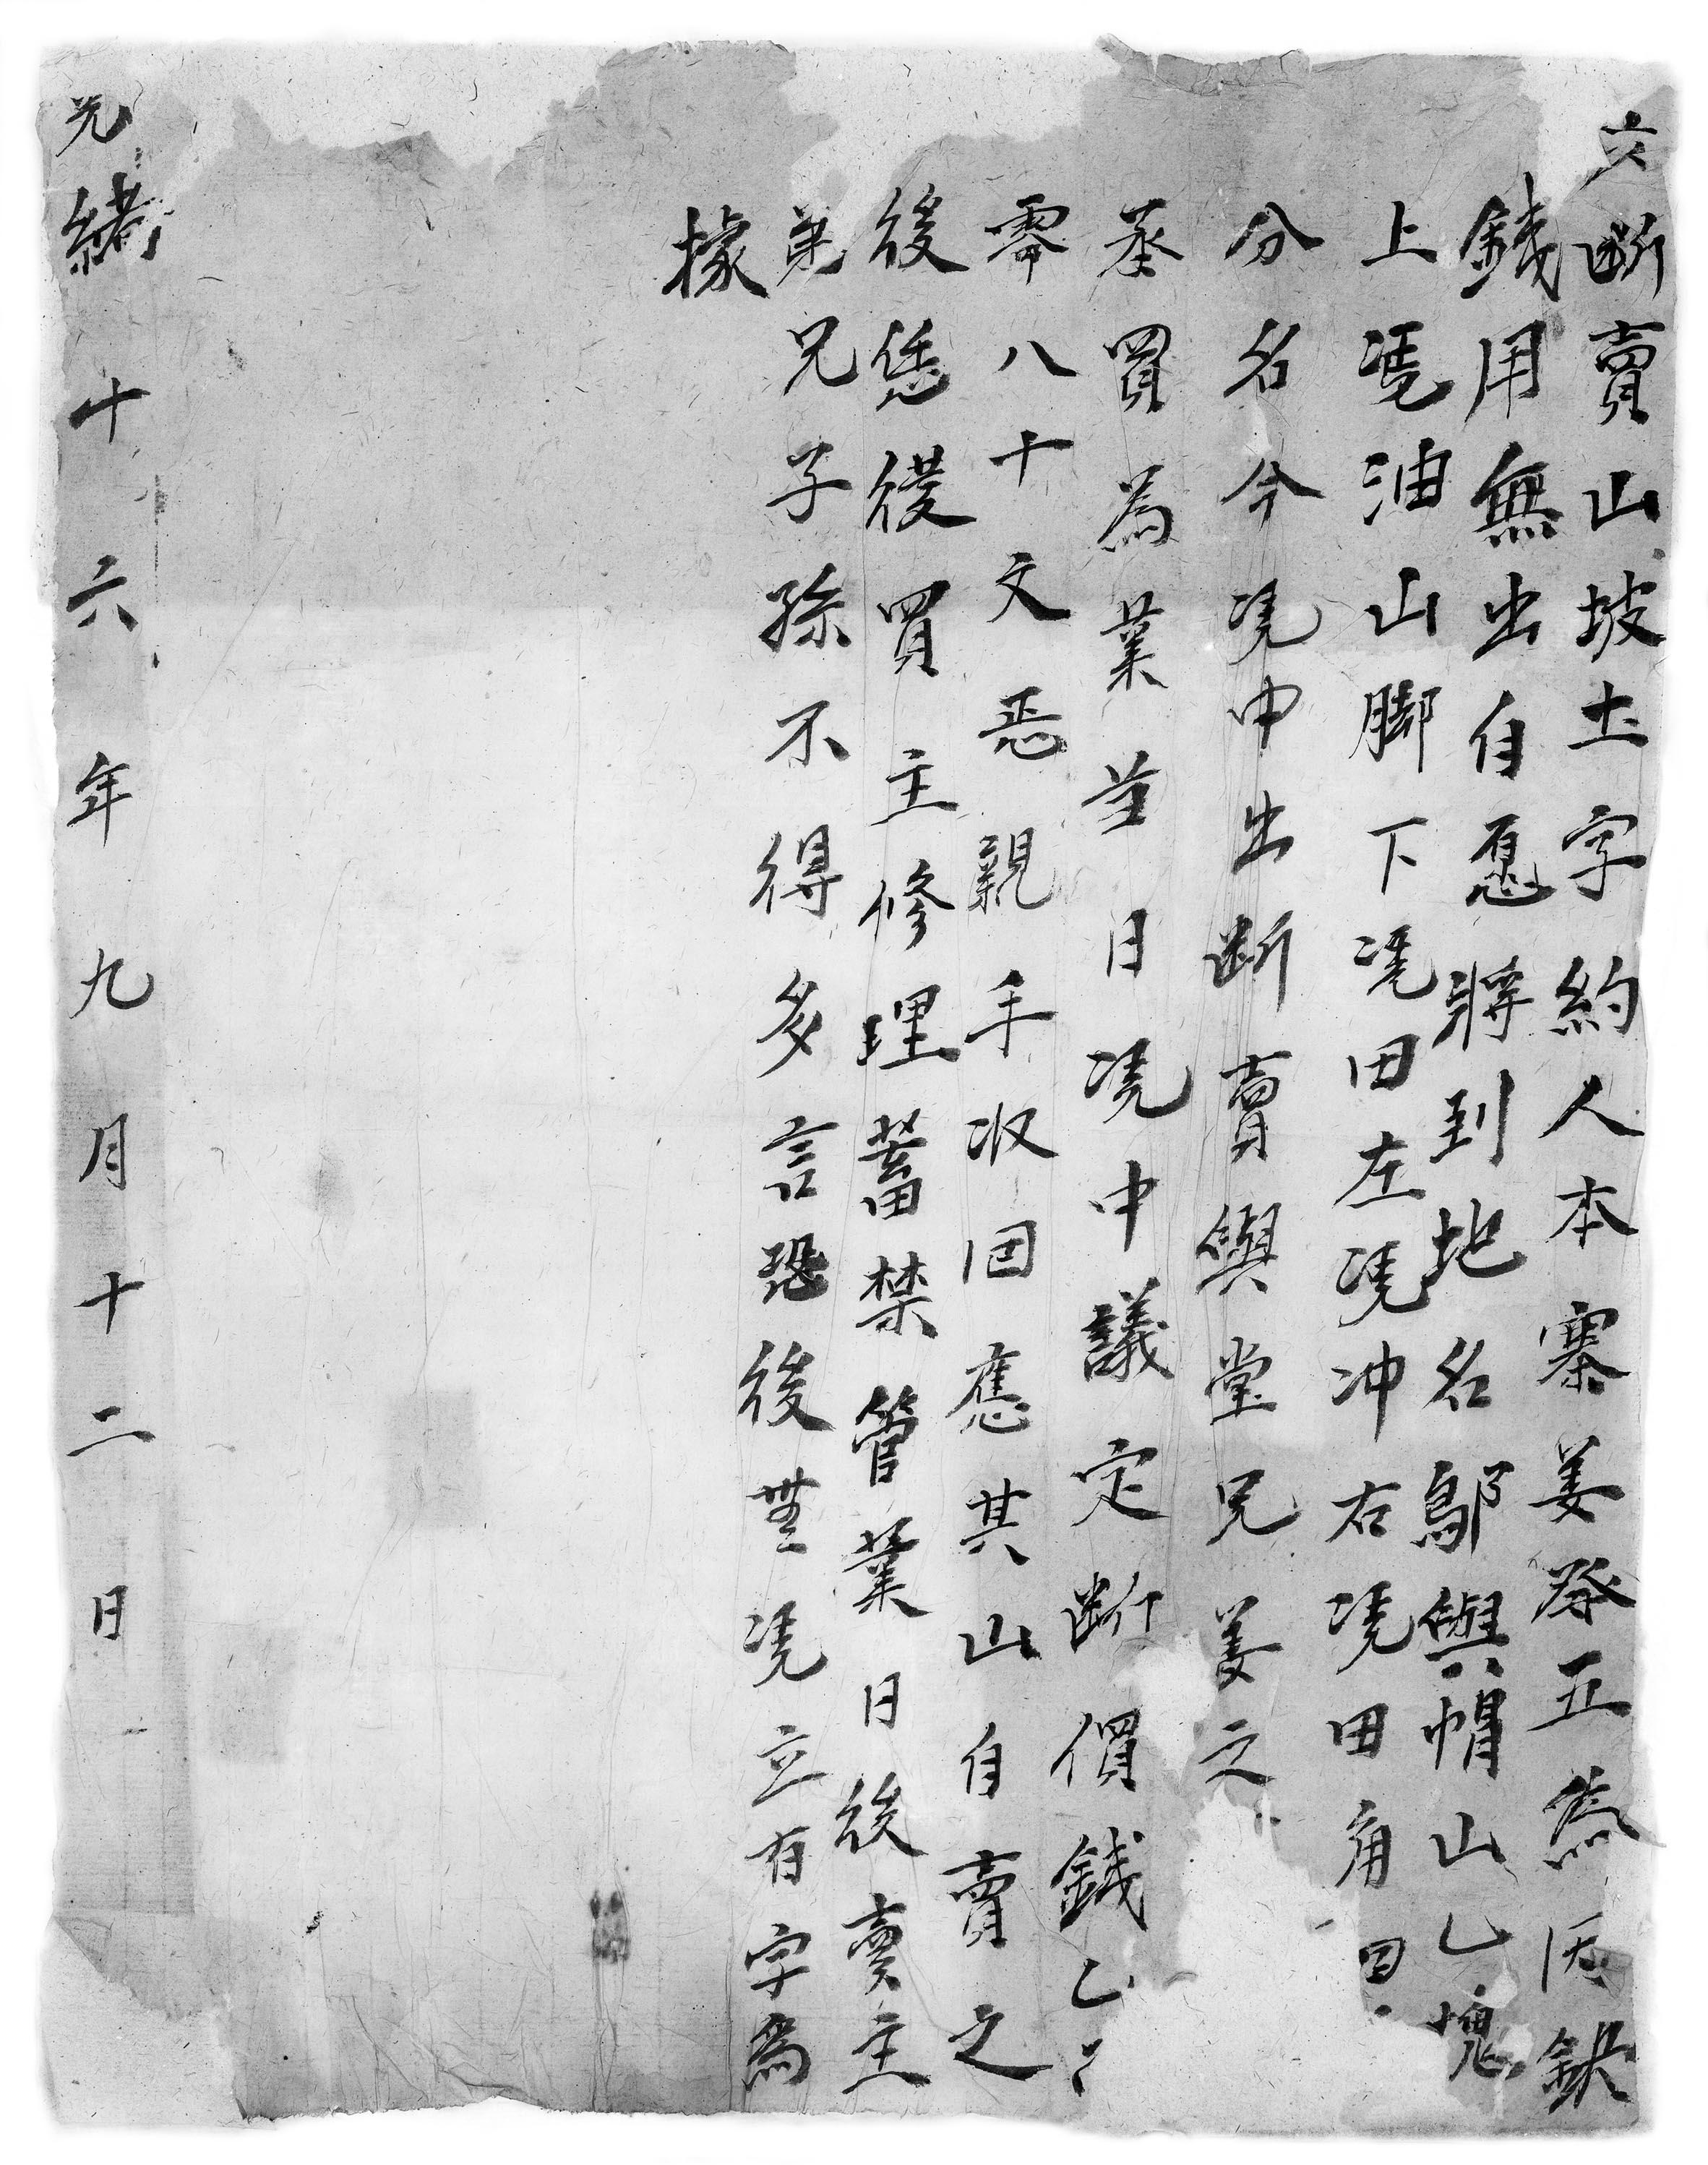 立断賣山坡土字約人本寨姜發五為因缺
錢用無出自愿將到地名鄔與帽山乙塊
上凴油山脚下凴田左凴冲右凴田角四
分名今凴中出断賣與堂兄姜之
承買為業並日凴中議定断價錢乙
零八十文恶親手收回應其山自賣之
後恁從買主修理蓄禁管業日後賣主
弟兄子孫不得多言恐後無凴立有字為
據
光緒十六年九月十二日